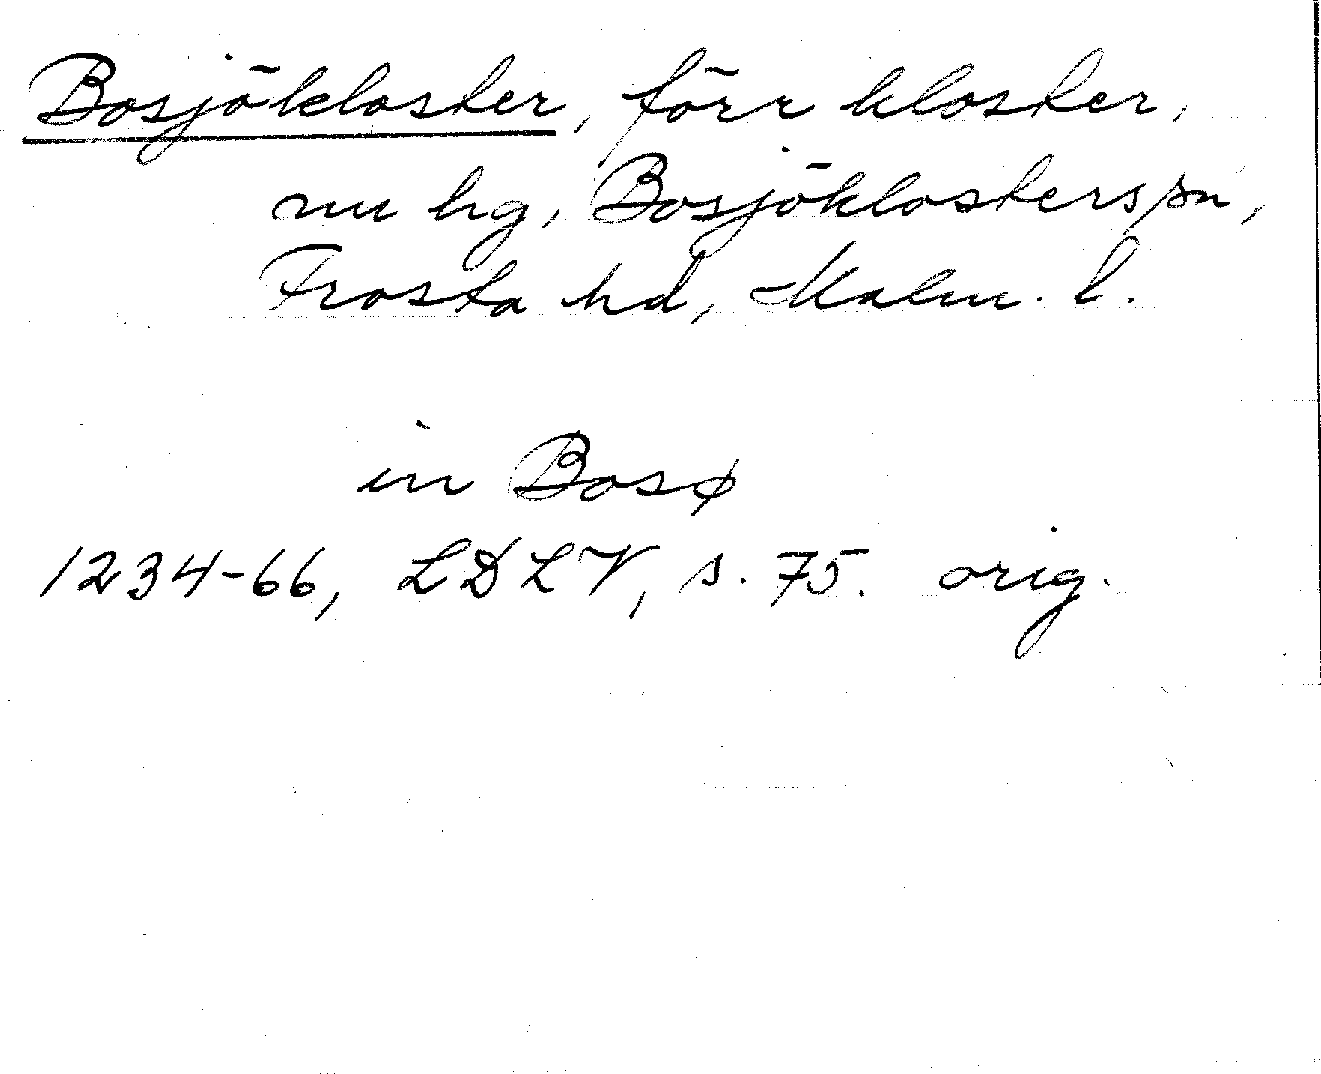 Bosjökloster, förr kloster,
nu hg, Bosjöklosters sn,
Frosta hd, Malm. l.
in Bosø
1234-66, LDLV, s. 75. orig.